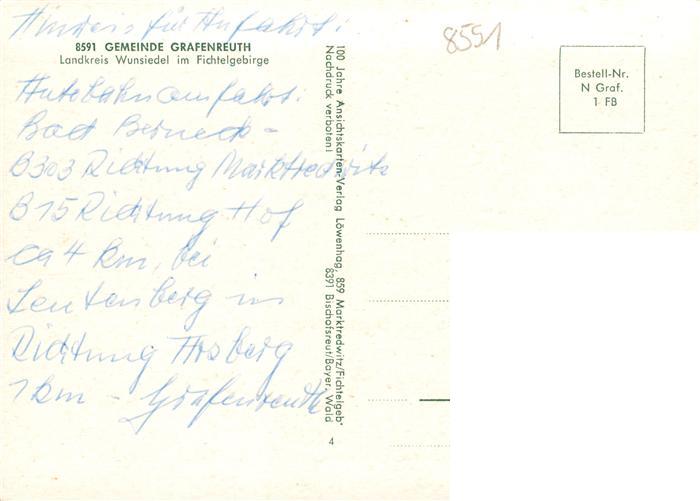 Hinweis für Anfahrt:
8591 GEMEINDE GRAFENREUTH
Landkreis Wunsiedel im Fichtelgebirge
Autobahnausfahrt:
Bad Berneck -
B303 Richtung Marktredwitz
B15 Richtung Hof
ca 4 km, bei
Leutenberg in
Richtung Arzberg
1 km - Grafenreuth
100 Jahre Ansichtskarten-Verlag Löwenhag, 859 Marktredwitz/Fichtelgeb.
Nachdruck verboten! 8391 Bischofsreut/Bayer. Wald
4
8551
Bestell-Nr.
N Graf.
1 FB